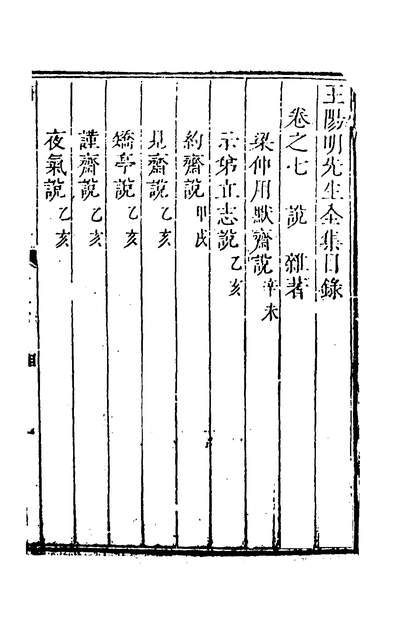 王陽明先生全集目錄
卷之七 說 雜著
梁仲用默齋說 辛未
示弟立志說 乙亥
約齋說 甲戌
見齋說 乙亥
矯亭說 乙亥
謹齋說 乙亥
夜氣說 乙亥